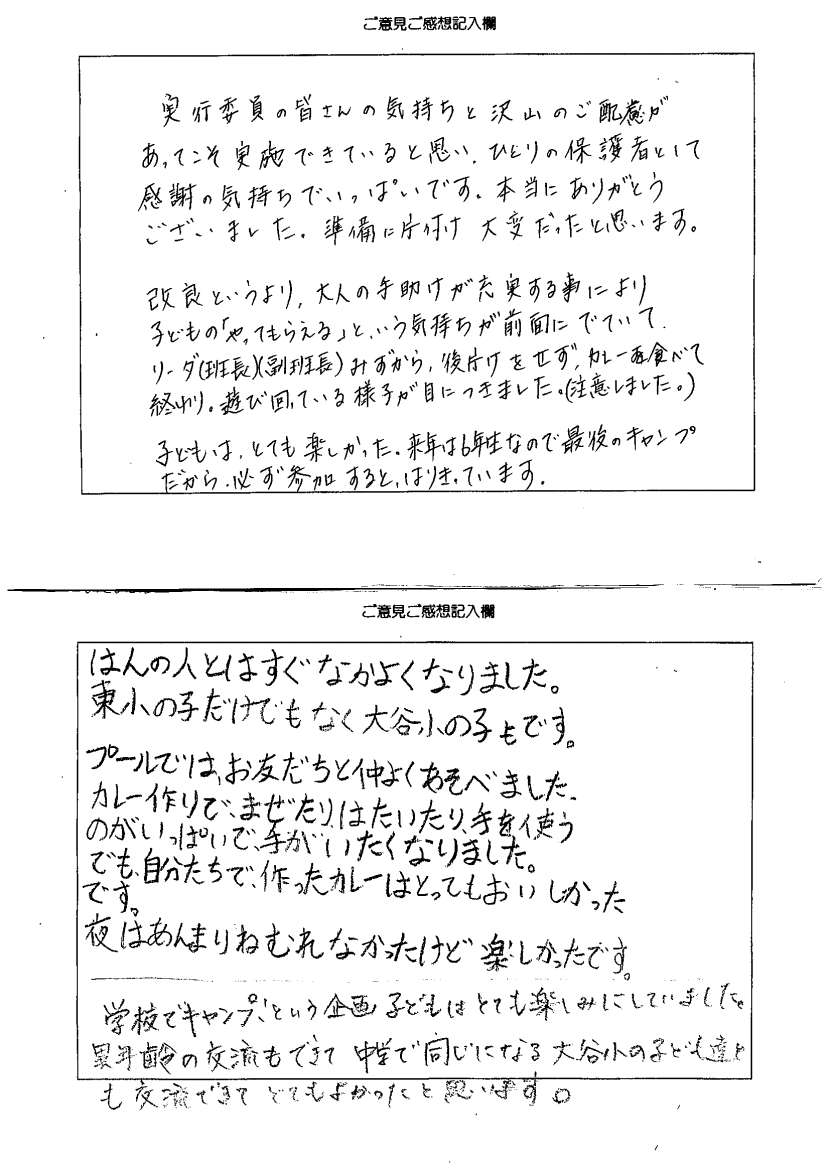 ご意見ご感想記入欄
実行委員の皆さんの気持ちと沢山のご配慮が
あってこそ実施できていると思い、ひとりの保護者として
感謝の気持ちでいっぱいです。本当にありがとう
ございました。準備に片付け大変だったと思います。
改良というより、大人の手助けが充実する事により
子どもの「やってもらえる」という気持ちが前面にでていて、
リーダ(班長)(副班長)みずから、後片けをせず、カレーを食べて
終わり。遊び回っている様子が目につきました。(注意しました。)
子どもは、とても楽しかった。来年は6年生なので最後のキャンプ
だから、必ず参加すると、はりきっています。
ご意見ご感想記入欄
はんの人とはすぐなかよくなりました。
東小の子だけでもなく大谷小の子もです。
プールでは、お友だちと仲よくあそべました、
カレー作りで、まぜたり、はたいたり、手を使う
のがいっぱいで、手がいたくなりました。
でも、自分たちで、作ったカレーはとってもおいしかった
です。
夜はあんまりねむれなかったけど楽しかったです。
学校でキャンプ、という企画 子どもはとても楽しみにしていました。
異年齢の交流もできて 中学で同じになる大谷小の子ども達と
も交流できて とてもよかったと思います。